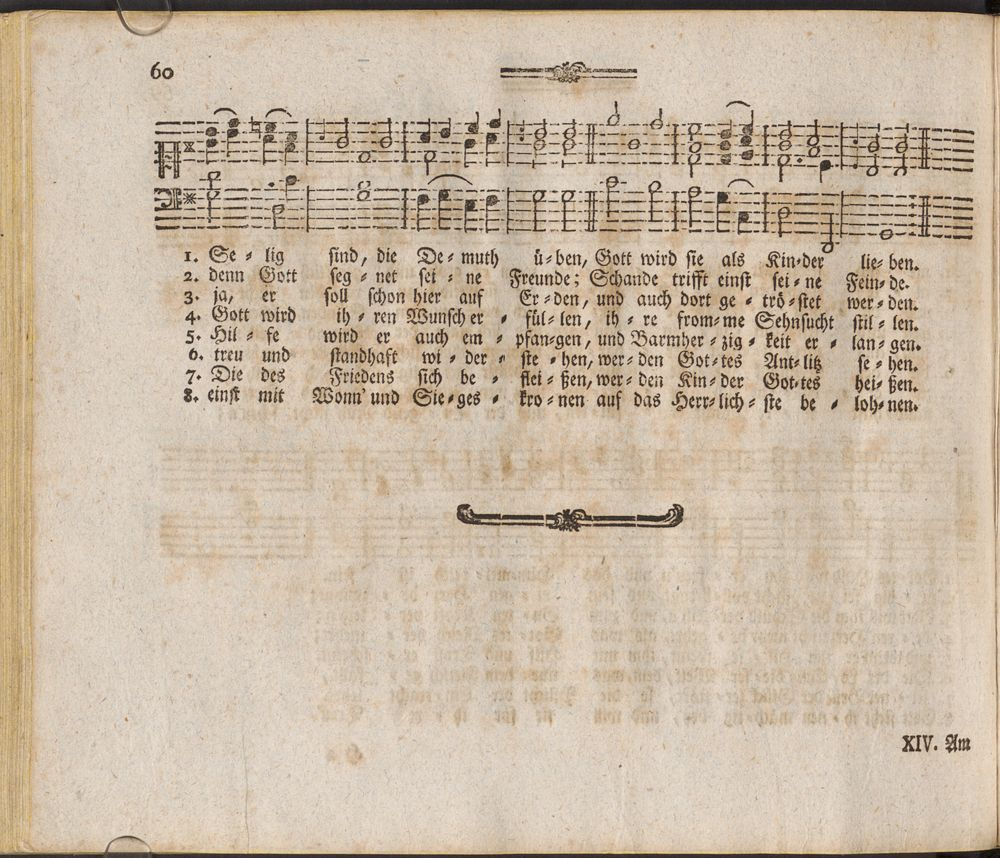 60
1. Se⸗lig sind, die De⸗muth ü⸗ben, Gott wird sie als Kin⸗der lie⸗ben.
2. denn Gott seg⸗net sei⸗ne Freunde; Schande trifft einst sei⸗ne Fein⸗de.
3. ja, er soll schon hier auf Er⸗den, und auch dort ge⸗trö⸗stet wer⸗den.
4. Gott wird ih⸗ren Wunsch er⸗fül⸗len, ih⸗re from⸗me Sehnsucht stil⸗len.
5. Hil⸗fe wird er auch em⸗pfan⸗gen, und Barmher⸗zig⸗keit er⸗lan⸗gen.
6. treu und standhaft wi⸗der⸗ste⸗hen, wer⸗den Got⸗tes Ant⸗litz se⸗hen.
7. Die des Friedens sich be⸗flei⸗ßen, wer⸗den Kin⸗der Got⸗tes hei⸗ßen.
8. einst mit Wonn' und Sie⸗ges⸗kro⸗nen auf das Herr⸗lich⸗ste be⸗loh⸗nen.
XIV. Am